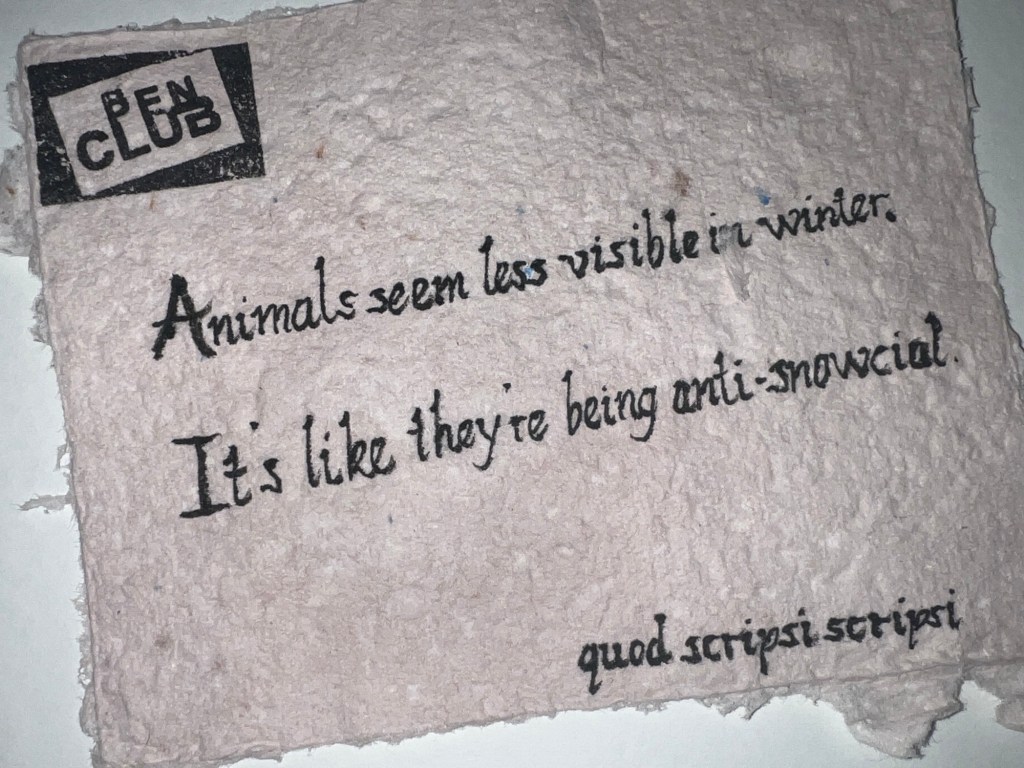 PEN
CLUB
Animals seem less visible in winter.
It's like they're being anti-snowcial.
quod scripsi scripsi